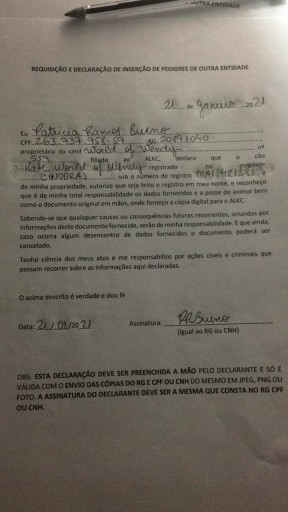 OUTRA ENTIDADE
REQUISIÇÃO E DECLARAÇÃO DE INSERÇÃO DE PEDIGREE DE OUTRA ENTIDADE
21 de Janeiro 2021
Eu Patricia Ramos Bueno
CPF 263.937.958-59
proprietário do canil World of Wendy nº
959 filiado ao ALKC, declaro que o cão
World of Wendy registrado na entidade
CINOBRAS sob o número de registro
de minha propriedade, autorizo que seja feito o registro em meu nome, e reconheço
que é de minha total responsabilidade os dados fornecidos e a posse do animal bem
como o documento original em mãos, onde forneço a cópia digital para o ALKC.
Sabendo-se que quaisquer causas ou consequências futuras recorrentes, oriundos por
informações deste documento fornecido, serão de minha responsabilidade. E que ainda,
caso ocorra algum desencontro de dados fornecidos o documento poderá ser
cancelado.
Tenho ciência dos meus atos e me responsabilizo por ações cíveis e criminais que
possam recorrer sobre as informações aqui declaradas.
O acima descrito é verdade e dou fé
Data: 21/01/2021 Assinatura: PRBueno
(Igual ao RG ou CNH)
OBS: ESTA DECLARAÇÃO DEVE SER PREENCHIDA A MÃO PELO DECLARANTE E SÓ É
VÁLIDA COM O ENVIO DAS CÓPIAS DO RG E CPF OU CNH DO MESMO EM JPEG, PNG OU
FOTO. A ASSINATURA DO DECLARANTE DEVE SER A MESMA QUE CONSTA NO RG CPF
OU CNH.